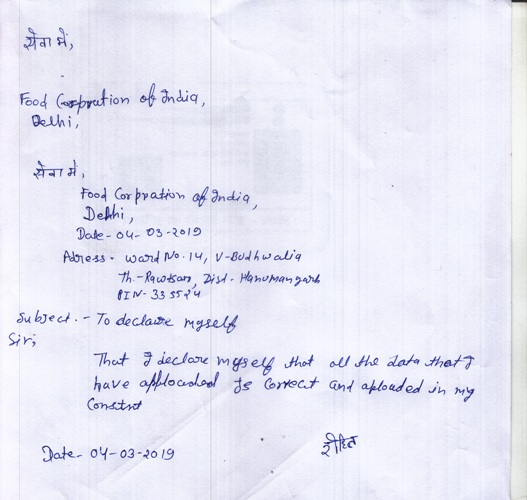 सेवा में,
Food Corpration of India,
Delhi,
सेवा में,
Food Corpration of India,
Delhi,
Date- 04-03-2019
Adress- ward No. 14, V-Budhwalia
Th.-Rawtsar, Dist- Hanumangarh
PIN- 335524
Subject.- To declare myself
Sir,
That I declare myself that all the data that I
have apploaded is correct and aploaded in my
Date- 04-03-2019
रोहित